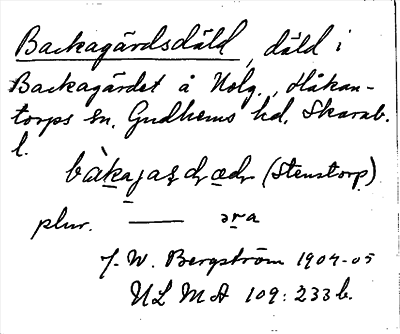 Backagärdsdäld, däld i
Backagärdet å Holg., Håkan-
torps sn. Gudhems hd. Skarab.
l.
bàkajaṣḍæḍ (Stenstorp)
plur. —— əra
J. W. Bergström 1904-05
ULMA 109:233 b.